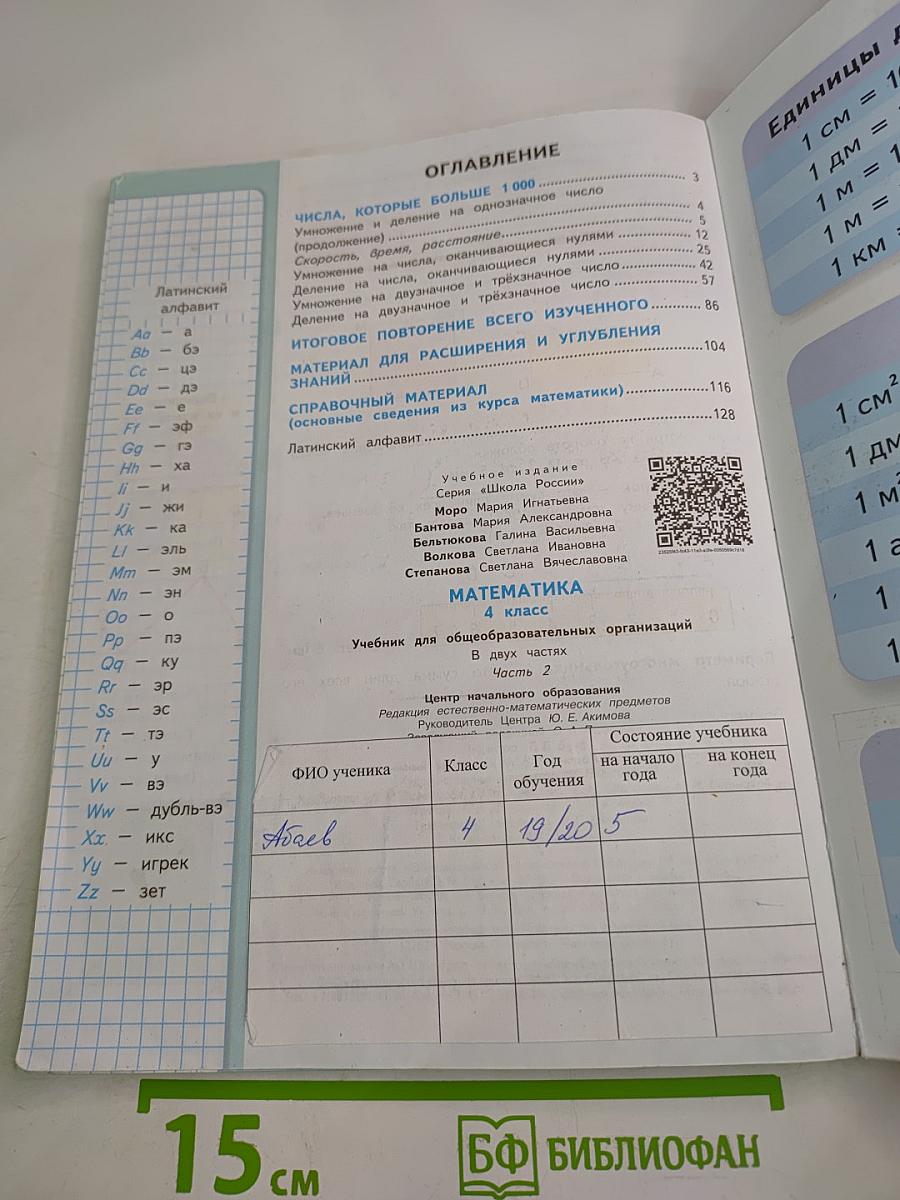 ОГЛАВЛЕНИЕ
ЧИСЛА, КОТОРЫЕ БОЛЬШЕ 1 000 ........ 3
Умножение и деление на однозначное число
(продолжение) ........ 4
Скорость, время, расстояние ........ 5
Умножение на числа, оканчивающиеся нулями ........ 12
Деление на числа, оканчивающиеся нулями ........ 25
Умножение на двузначное и трёхзначное число ........ 42
Деление на двузначное и трёхзначное число ........ 57
ИТОГОВОЕ ПОВТОРЕНИЕ ВСЕГО ИЗУЧЕННОГО ........ 86
МАТЕРИАЛ ДЛЯ РАСШИРЕНИЯ И УГЛУБЛЕНИЯ
ЗНАНИЙ ........ 104
СПРАВОЧНЫЙ МАТЕРИАЛ
(основные сведения из курса математики) ........ 116
Латинский алфавит ........ 128
Латинский
алфавит
Aa — а
Bb — бэ
Cc — цэ
Dd — дэ
Ee — е
Ff — эф
Gg — гэ
Hh — ха
Ii — и
Jj — жи
Kk — ка
Ll — эль
Mm — эм
Nn — эн
Oo — о
Pp — пэ
Qq — ку
Rr — эр
Ss — эс
Tt — тэ
Uu — у
Vv — вэ
Ww — дубль-вэ
Xx — икс
Yy — игрек
Zz — зет
Учебное издание
Серия «Школа России»
Моро Мария Игнатьевна
Бантова Мария Александровна
Бельтюкова Галина Васильевна
Волкова Светлана Ивановна
Степанова Светлана Вячеславовна
МАТЕМАТИКА
4 класс
Учебник для общеобразовательных организаций
В двух частях
Часть 2
Центр начального образования
Редакция естественно-математических предметов
Руководитель Центра Ю. Е. Акимова
ФИО ученика
Класс
Год
обучения
Состояние учебника
на начало
года
на конец
года
Абаев 4 19/20 5
Единицы
1 см =
1 дм =
1 м =
1 м =
1 км =
1 см²
1 дм
1 м²
1 а
1
1
15 см
БФ БИБЛИОФАН